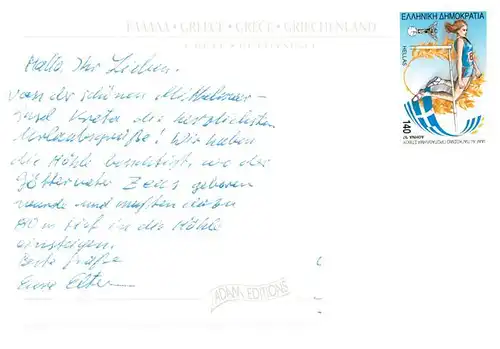 ΕΛΛΑΔΑ • GREECE • GRÈCE • GRIECHENLAND
Hallo, Ihr Lieben.
von der schönen Mittelmeer-
insel Kreta die herzlichsten
Urlaubsgrüße! Wir haben
die Höhle besichtigt, wo der
Göttervater Zeus geboren
wurde und mußten dazu
80 m tief in die Höhle
einsteigen.
Beste Grüße
Eure
ADAM EDITIONS
ΕΛΛΗΝΙΚΗ ΔΗΜΟΚΡΑΤΙΑ
HELLAS
140
ΑΘΗΝΑ 97